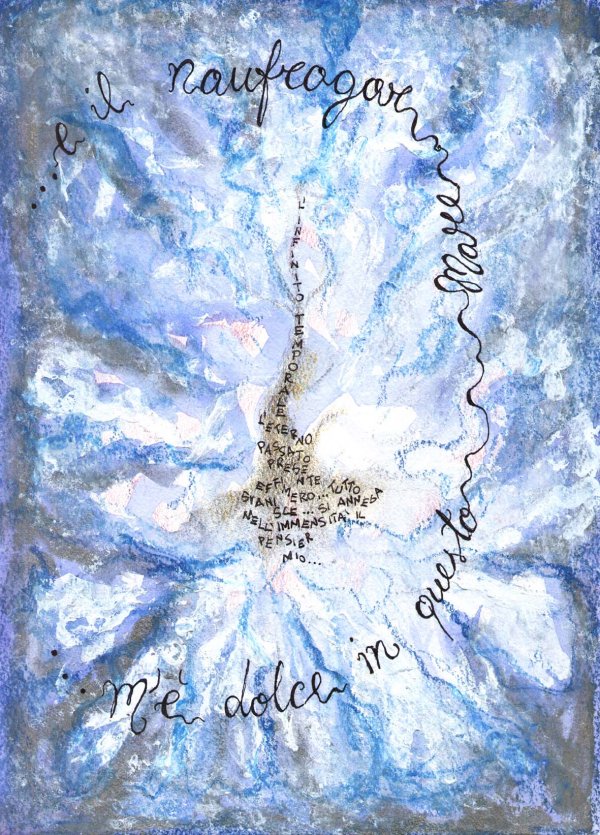 ...e il naufragar
m'è dolce in questo Mare...
L'INFINITO TEMPORALE
L'ETERNO
PASSATO
PRESE
EFFI NTE TUTTO
SVANI MERO...
SCE... SI ANNEGA
NELL'IMMENSITA' IL
PENSIER
MIO...